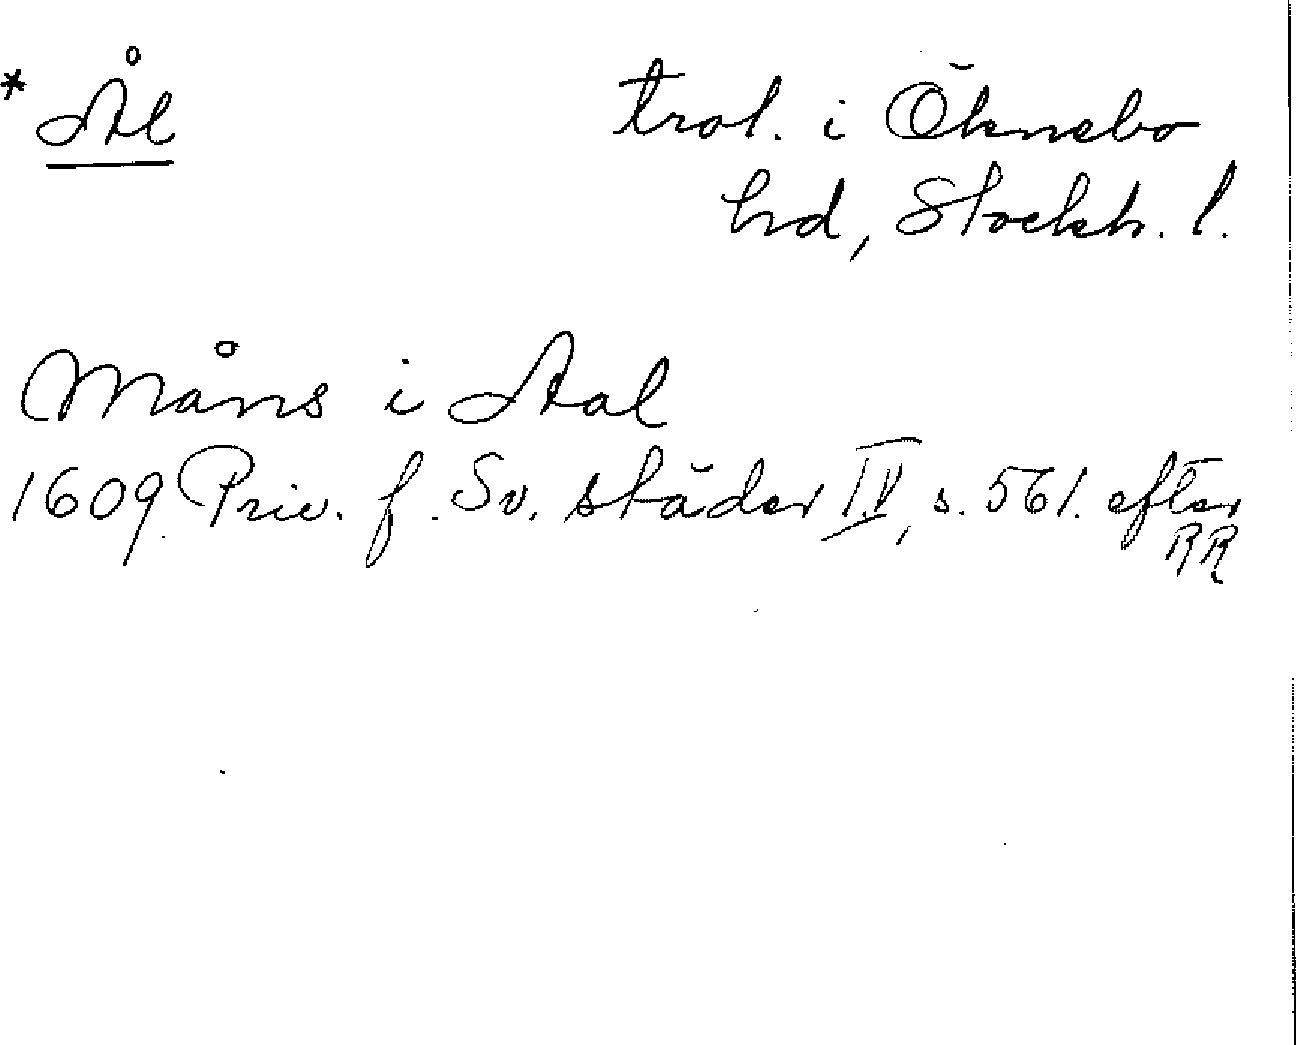 * Ål
trol. i Öknebo
hd, Stockh. l.
Måns i Aal
1609 Priv. f. Sv. städer IV, s. 561. efter
RR